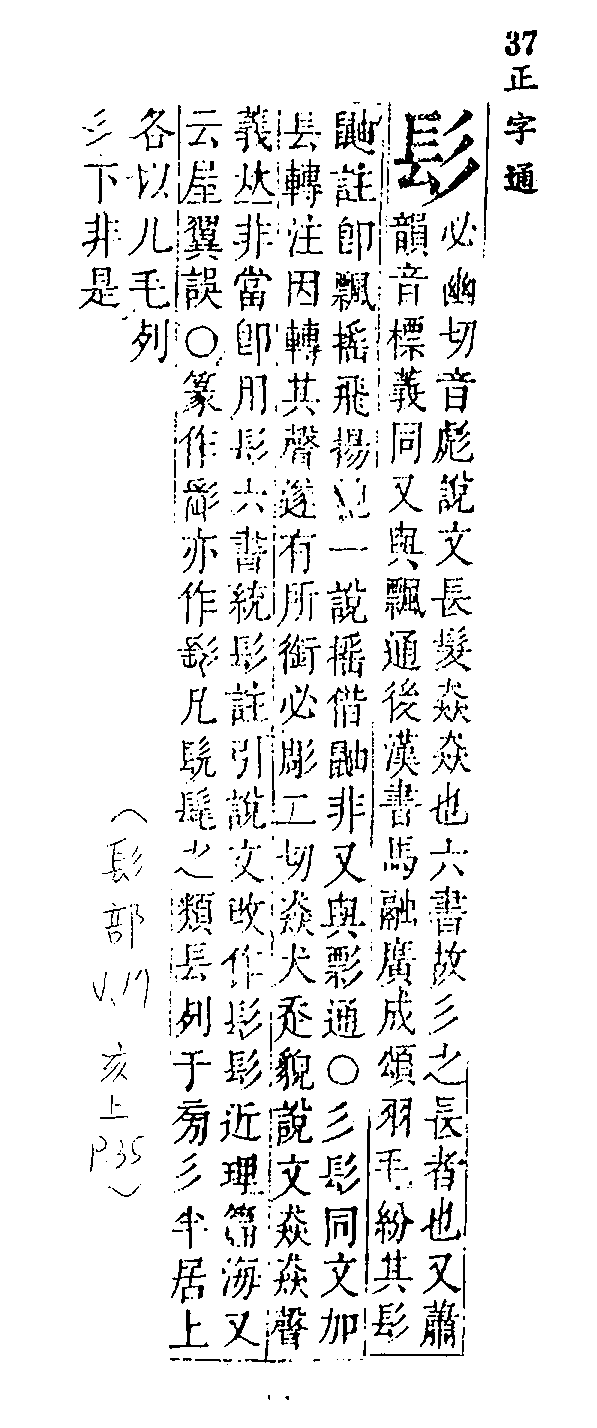 37 正字通
髟 必幽切音彪說文長髮猋猋也六書故彡之長者也又蕭
韻音標義同又與飄通後漢書馬融廣成頌羽毛紛其髟
鼬註卽飄摇飛揚皃一說摇偕鼬非又與髟通○彡髟同文加
镸轉注因轉其聲遂有所銜必彫二切猋犬走貌說文猋猋聲
義丛非當卽用髟六書統髟註引說文改作髟髟近理篇海又
云星翼誤○篆作 亦作 凡髡髦之類镸列于旁彡半居上
各以儿毛列
彡下非是
(髟部
V.17
亥上
P.35)